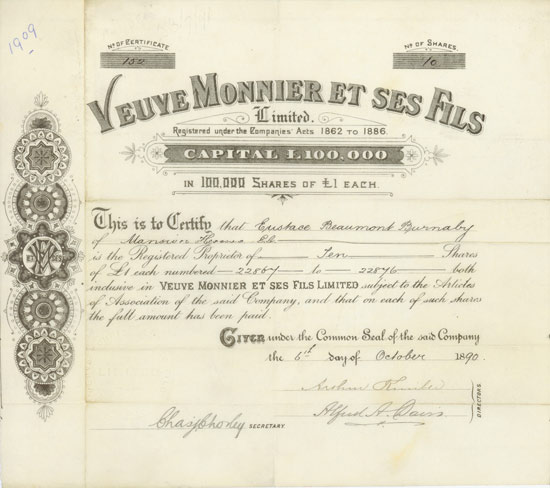 1909
No. OF CERTIFICATE
152
No. OF SHARES.
10
VEUVE MONNIER ET SES FILS
Limited.
Registered under the Companies' Acts 1862 TO 1886.
CAPITAL £100,000
IN 100,000 SHARES OF £1 EACH.
This is to Certify that Eustace Beaumont Burnaby
of Mansion House
is the Registered Proprietor of Ten Shares
of £1 each numbered 22867 to 22876 both
inclusive in VEUVE MONNIER ET SES FILS LIMITED subject to the Articles
of Association of the said Company, and that on each of such shares
the full amount has been paid.
GIVEN under the Common Seal of the said Company
the 6th day of October 1890.
Alfred A.
DIRECTORS.
SECRETARY.